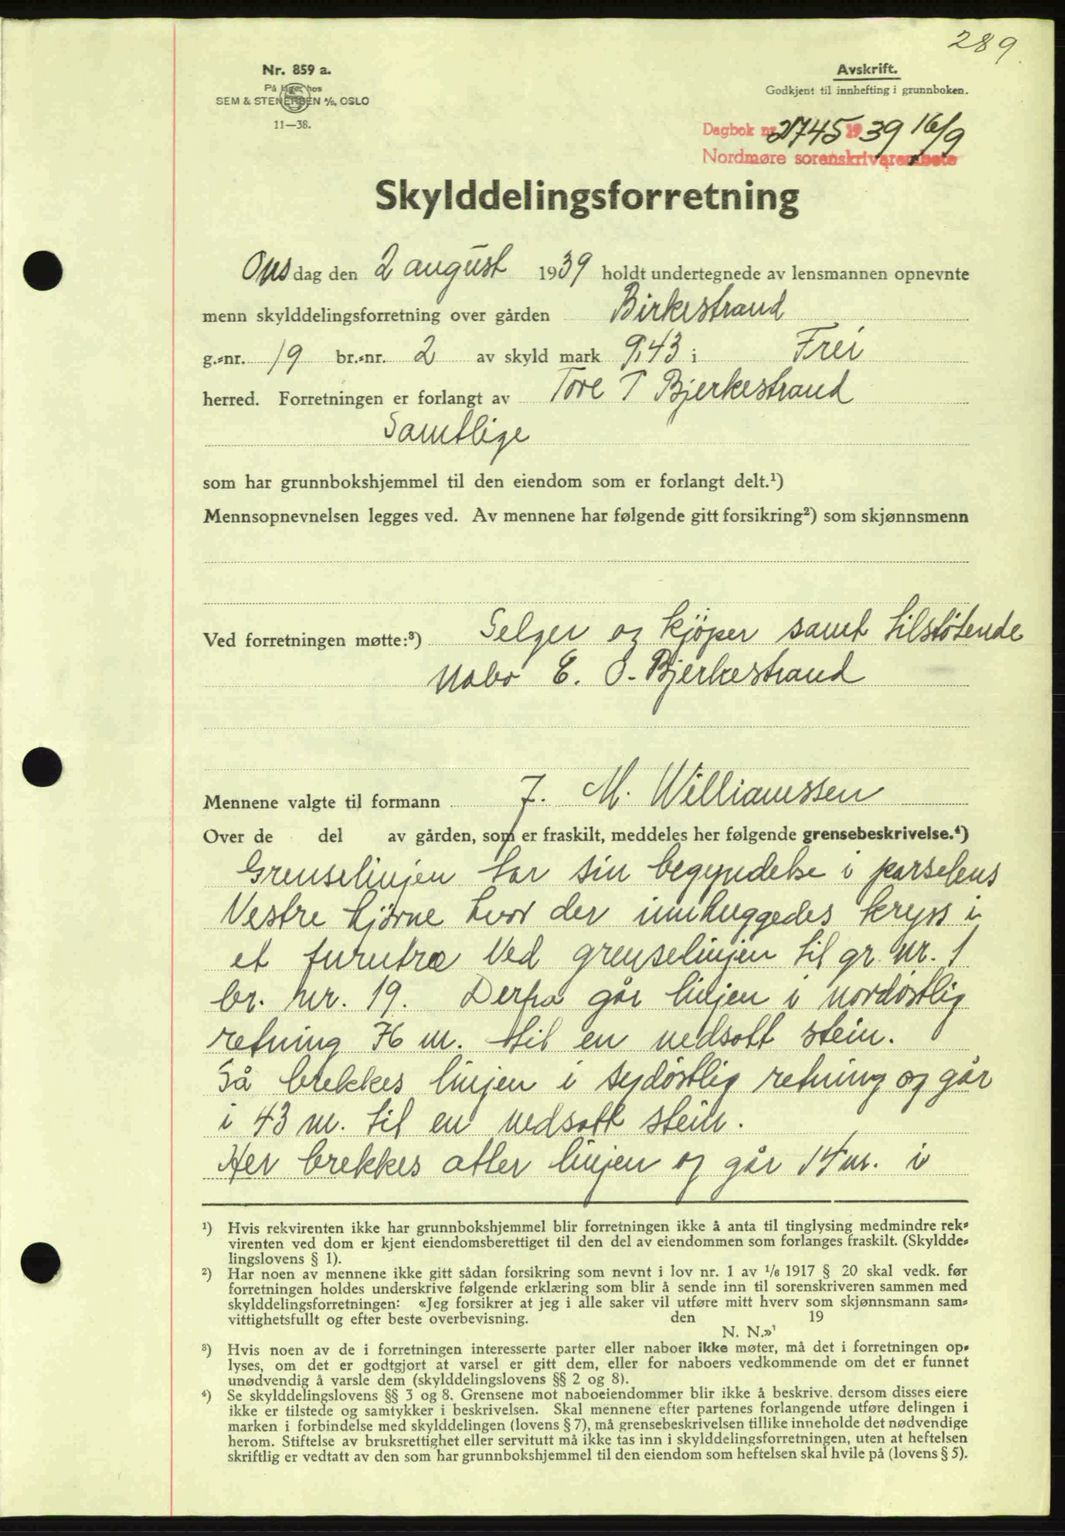 289
Nr. 859 a.
På lager hos
SEM & STENERSEN A/S, OSLO
11—38.
Avskrift.
Godkjent til innhefting i grunnboken.
Dagbok nr. 2745 1939 16/9
Nordmøre sorenskriverembete
Skylddelingsforretning
Onsdag den 2 august 1939 holdt undertegnede av lensmannen opnevnte
menn skylddelingsforretning over gården Birkestrand
g.-nr. 19 br.-nr. 2 av skyld mark 9,43 i Frei
herred. Forretningen er forlangt av Tore T Bjerkestrand
Samtlige
som har grunnbokshjemmel til den eiendom som er forlangt delt.¹)
Mennsopnevnelsen legges ved. Av mennene har følgende gitt forsikring²) som skjønnsmenn
Ved forretningen møtte:³) Selger og kjöper samt tilstötende
Nabo E. O. Bjerkestrand
Mennene valgte til formann J. M. Williamssen
Over de del av gården, som er fraskilt, meddeles her følgende grensebeskrivelse.⁴)
Grenselinjen tar sin begyndelse i parselens
Vestre hjörne hvor der innhuggedes kryss i
et furutræ Ved grenselinjen til gr. nr. 1
br. nr. 19. Derfra går linjen i nordöstlig
retning 76 m. til en nedsatt stein.
Så brekkes linjen i sydöstlig retning og går
i 43 m. til en nedsatt stein.
Her brekkes atter linjen og går 14 m. i
¹) Hvis rekvirenten ikke har grunnbokshjemmel blir forretningen ikke å anta til tinglysing medmindre rek-
virenten ved dom er kjent eiendomsberettiget til den del av eiendommen som forlanges fraskilt. (Skyldde-
lingslovens § 1).
²) Har noen av mennene ikke gitt sådan forsikring som nevnt i lov nr. 1 av 1/6 1917 § 20 skal vedk. før
forretningen holdes underskrive følgende erklæring som blir å sende inn til sorenskriveren sammen med
skylddelingsforretningen: «Jeg forsikrer at jeg i alle saker vil utføre mitt hverv som skjønnsmann sam-
vittighetsfullt og efter beste overbevisning. den 19
N. N.»
³) Hvis noen av de i forretningen interesserte parter eller naboer ikke møter, må det i forretningen op-
lyses, om det er godtgjort at varsel er gitt dem, eller for naboers vedkommende om det er funnet
unødvendig å varsle dem (skylddelingslovens §§ 2 og 8).
⁴) Se skylddelingslovens §§ 3 og 8. Grensene mot naboeiendommer blir ikke å beskrive, dersom disses eiere
ikke er tilstede og samtykker i beskrivelsen. Skal mennene efter partenes forlangende utføre delingen i
marken i forbindelse med skylddelingen (lovens § 7), må grensebeskrivelsen tillike inneholde det nødvendige
herom. Stiftelse av bruksrettighet eller servitutt må ikke tas inn i skylddelingsforretningen, uten at heftelsen
skriftlig er vedtatt av den som har grunnbokshjemmel til den eiendom som heftelsen skal hvile på (lovens § 5).